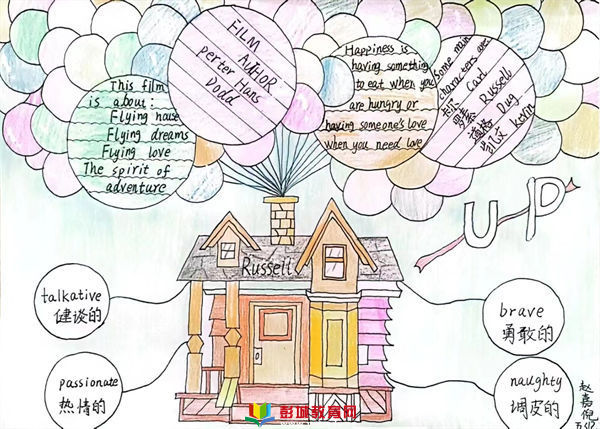 This film
is about:
Flying hause
Flying dreams
Flying love
The spirit of
adventure
FILM
AUTHOR
perter Hans
Dodd
Happiness is
having something
to eat when you
are hungry or
having someone's love
when you need love
some main
characters are
卡尔 Carl
罗素 Russell
道格 Dug
凯文 kevin
UP
Russell
talkative
健谈的
passionate
热情的
brave
勇敢的
naughty
调皮的
赵嘉倪
彭城教育网